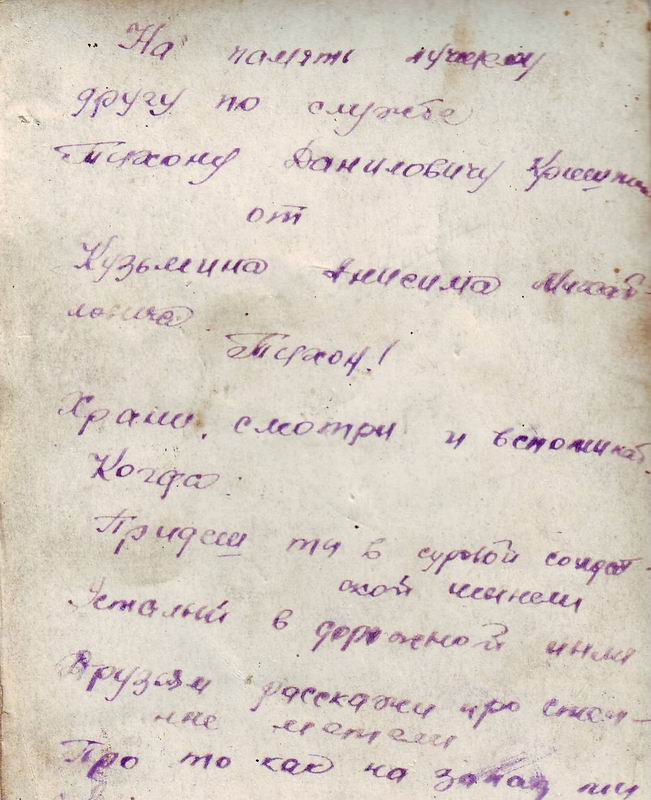 На память лучшему
другу по службе
Тихону Даниловичу
от
Кузьмина Анисима Михай-
ловича
Тихон!
Храни, смотри и вспоминай
Когда
Придеш ты в суровой солдат-
ской шинели
Усталый в дорожной пыли
Друзьям расскажи про степ-
ные метели
Про то как на запад мы